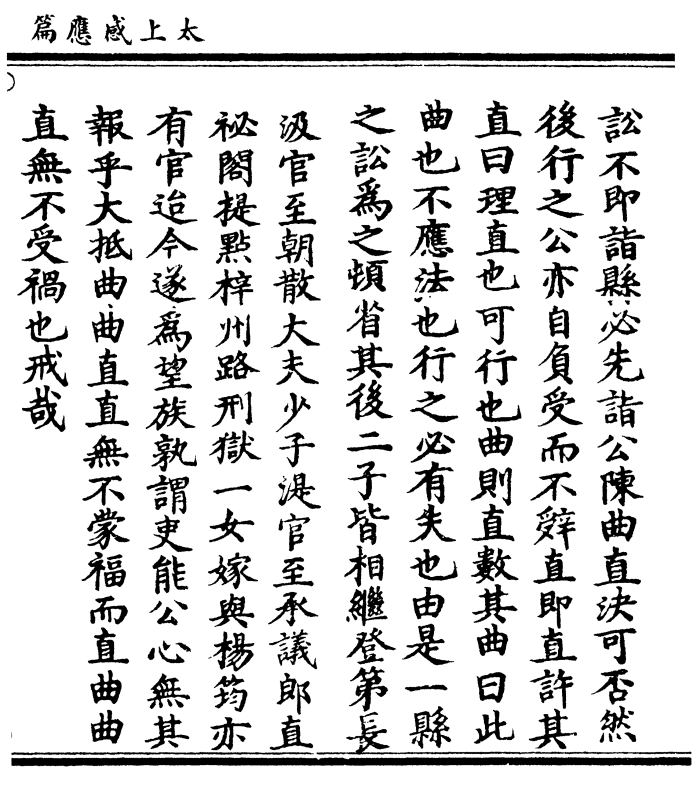 太上感應篇
訟不即詣縣必先詣公陳曲直決可否然
後行之公亦自負受而不辤直即直許其
直曰理直也可行也曲則直數其曲曰此
曲也不應法也行之必有失也由是一縣
之訟爲之頓省其後二子皆相繼登第長
汲官至朝散大夫少子湜官至承議郎直
祕閣提點梓州路刑獄一女嫁與楊筠亦
有官迨今遂爲望族孰謂吏能公心無其
報乎大抵曲曲直直無不蒙福而直曲曲
直無不受禍也戒哉